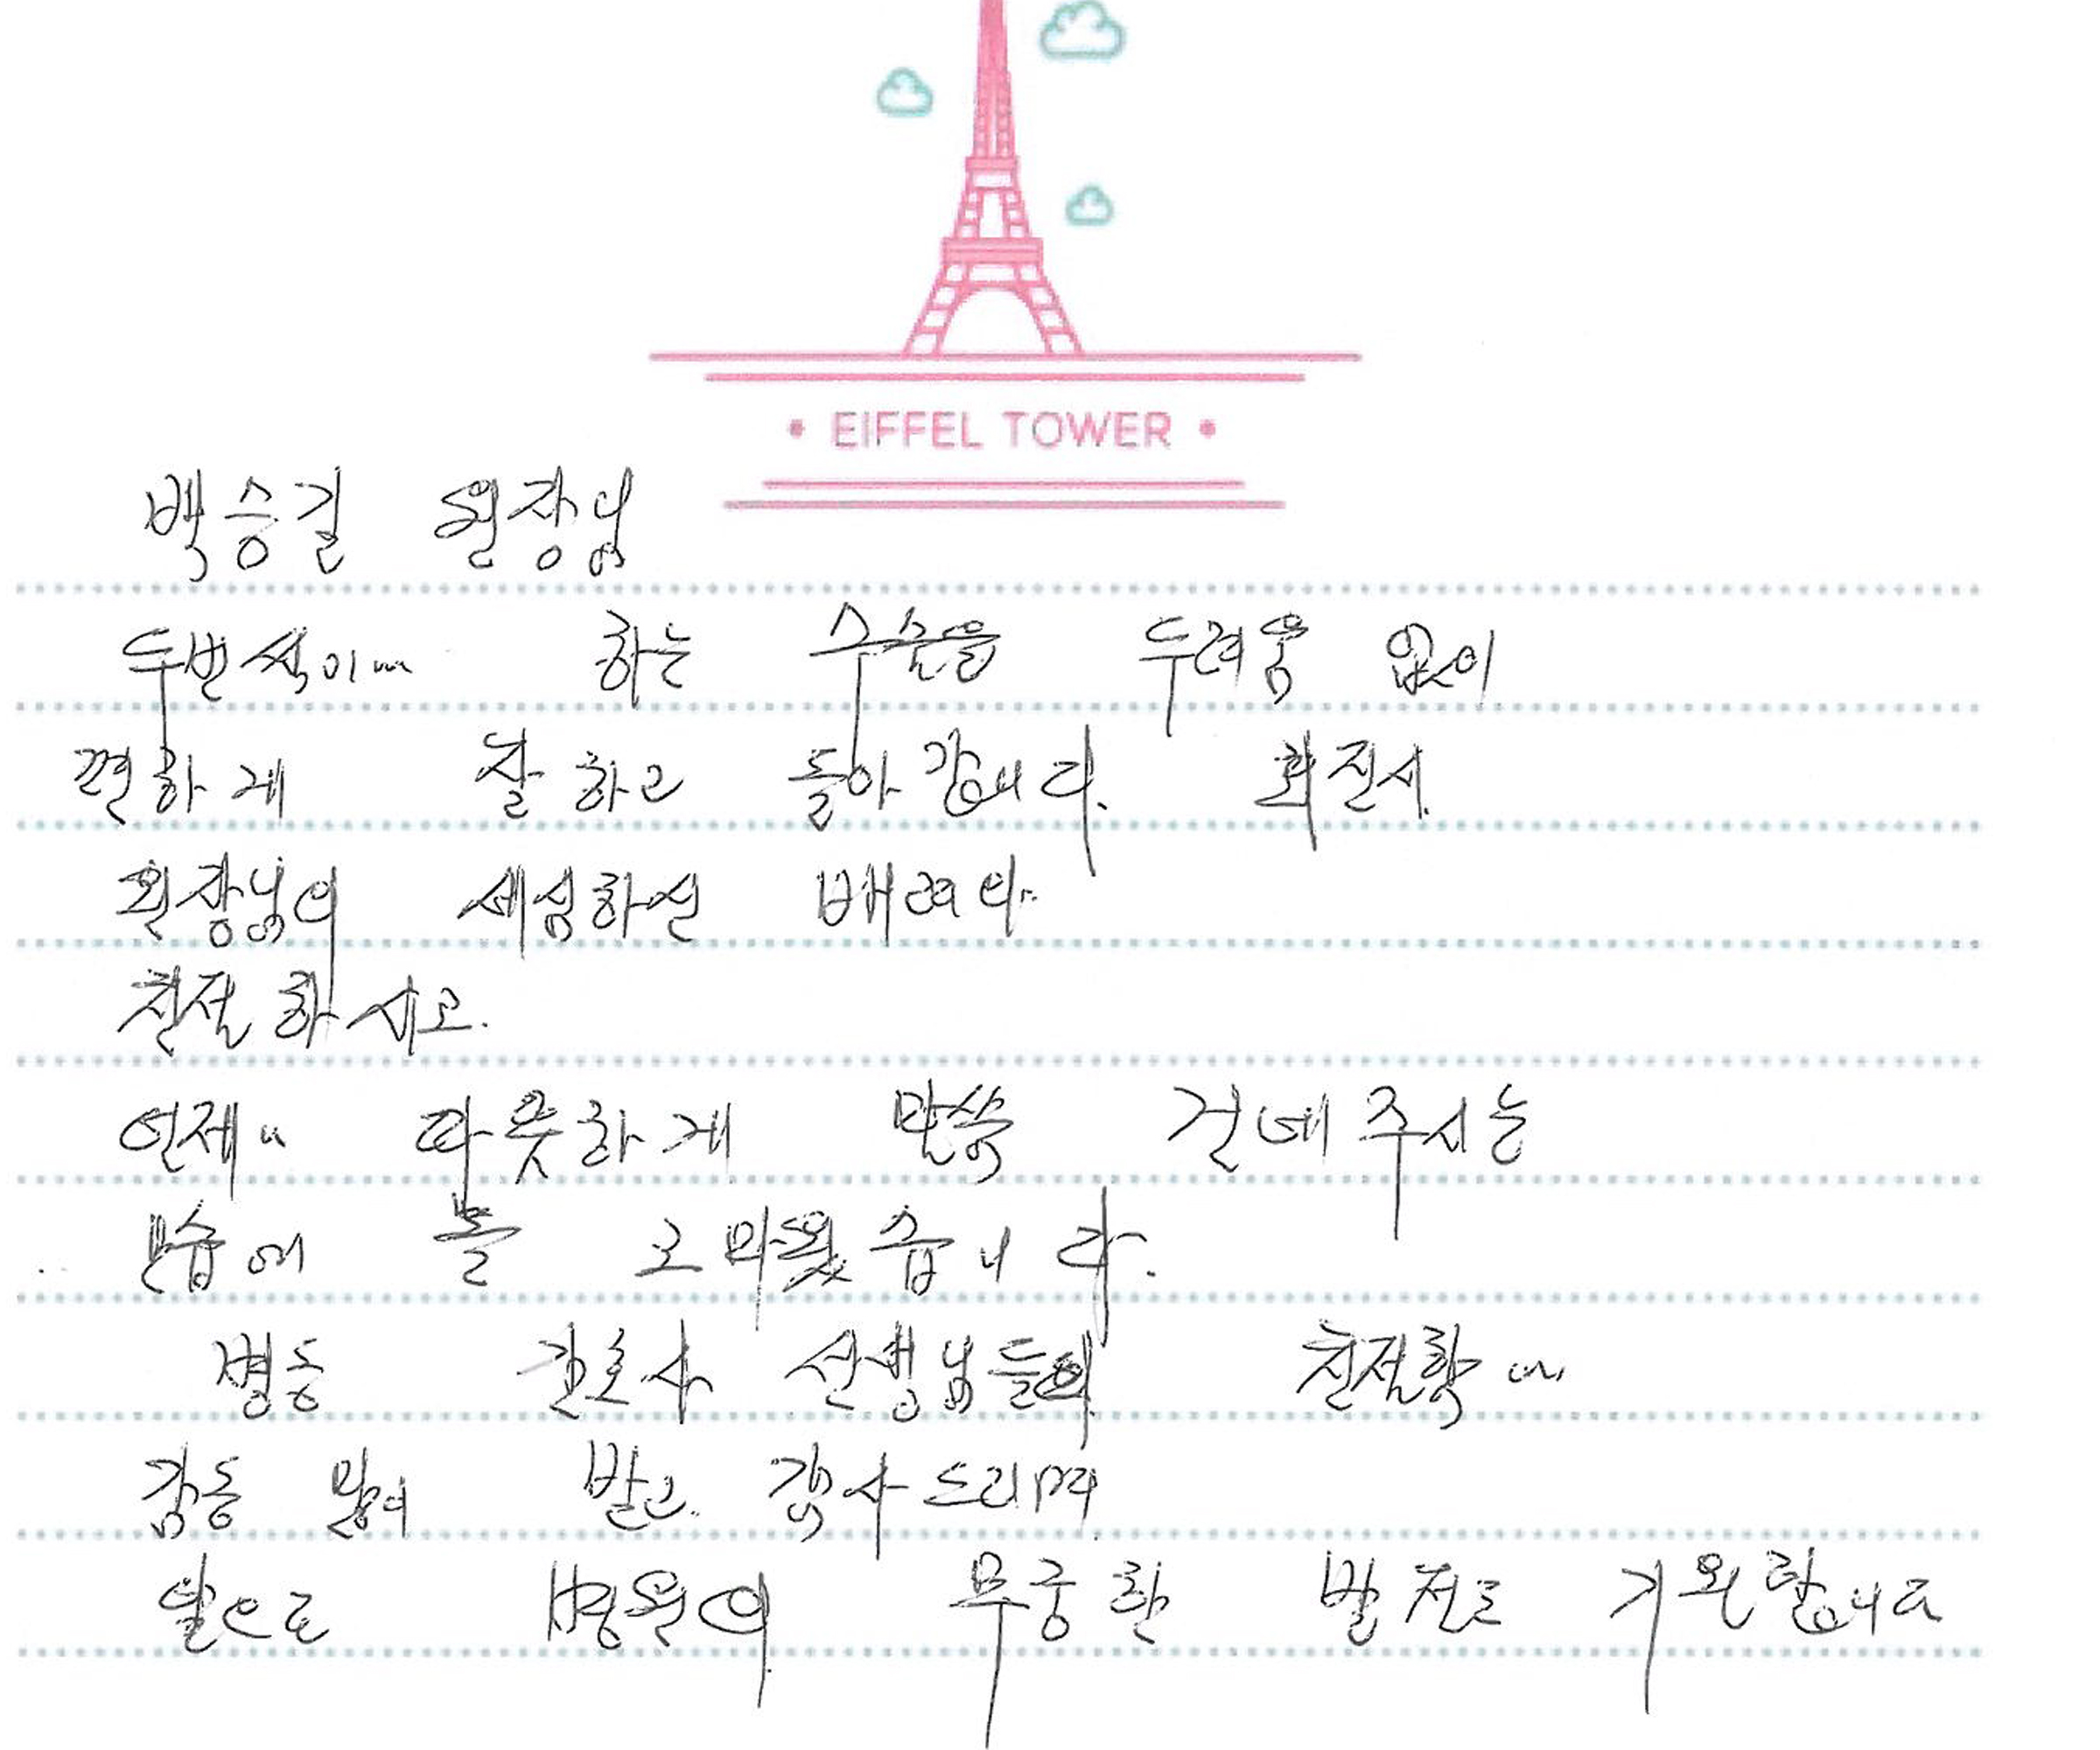 EIFFEL TOWER
백승걸 원장님
두번씩이나 하는 수술을 두려움 없이
편하게 잘하고 돌아갑니다. 회진시
원장님의 세심하신 배려와
친절하시고.
언제나 따뜻하게 말씀 건네주시는
모습에 늘 고마웠습니다.
병동 간호사 선생님들의 친절함에
감동 많이 받고 감사드리며
앞으로 병원의 무궁한 발전도 기원합니다